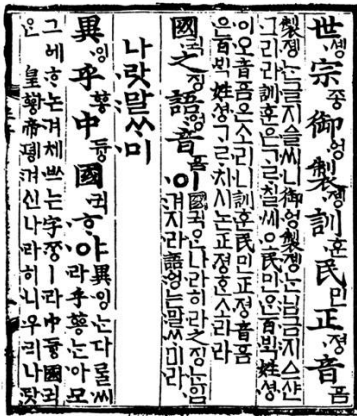 世솅宗종御ᅌᅥᆼ製졩訓훈民민正져ᇰ音ᅙᅳᆷ
製졩ᄂᆞᆫ글지ᅀᅳᆯ씨니御ᅌᅥᆼ製졩ᄂᆞᆫ님금지ᅀᅳ샨
그리라訓훈은ᄀᆞᄅᆞ칠씨오民민ᄋᆞᆫ百ᄇᆡᆨ姓셔ᇰ
이오音ᅙᅳᆷ은소리니訓훈民민正져ᇰ音ᅙᅳᆷ
은百ᄇᆡᆨ姓셔ᇰᄀᆞᄅᆞ치시논正져ᇰᄒᆞᆫ소리라
國귁之징語ᅌᅥᆼ音ᅙᅳᆷ이
國귁ᄋᆞᆫ나라히라之징ᄂᆞᆫ입
겨지라語ᅌᅥᆼᄂᆞᆫ말ᄊᆞ미라
나랏말ᄊᆞ미
異잉乎ᅘᅩᆼ中듀ᇰ國귁ᄒᆞ야
異잉ᄂᆞᆫ다ᄅᆞᆯ씨
라乎ᅘᅩᆼᄂᆞᆫ아모
그ᅌᅦᄒᆞ논겨체ᄡᅳ는字ᄍᆞᆼㅣ라中듀ᇰ國귁
ᄋᆞᆫ皇황帝뎽겨신나라히니우리나랏